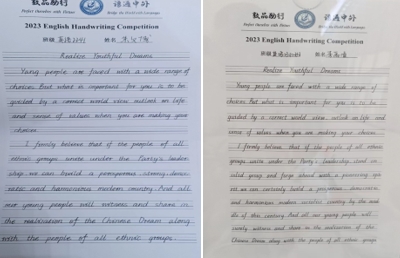 Perfect Ourselves with Virtue
Bridge the World with Language
2023 English Handwriting Competition
班级 英语2241 姓名
Realise Youthful Dreams
Yong people are faced with a wide range of
choices. But what is important for you is to be
guided by a correct world view, outlook on life
and sense of values when you are making your
choice.
I firmly believe that if the people of all
ethnic groups unite under the Party's leader
ship we can build a prosperous, strong, democ
ratic and harmonious modern country. And all
our young people will witness and share in
the realisation of the Chinese Dream along
with the people of all ethnic groups.
致知励行 译通中外
Bridge the World with Language
2023 English Handwriting Competition
班级 姓名
Realise Youthful Dreams
Young people are faced with a wide range of
choices. But what is important for you is to be
guided by a correct world view, outlook on life and
sense of values when you are making your choice.
I firmly believe that if the people of all ethnic
groups unite under the Party's leadership, stand on
solid ground and forge ahead with a pioneering spi
rit, we can certainly build a prosperous, democratic,
and harmonious modern socialist country by the mid
dle of this century. And all our young people will
surely witness and share in the realisation of the
Chinese Dream along with the people of all ethnic groups